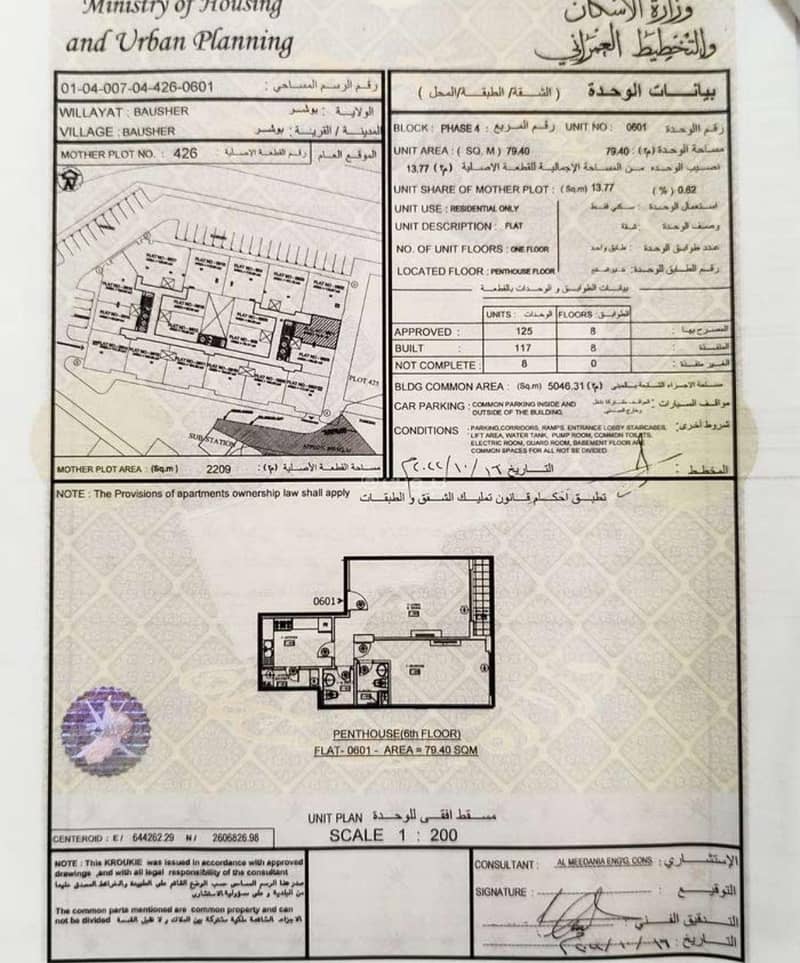 Ministry of Housing
and Urban Planning
وزارة الإسكان
والتخطيط العمراني
01-04-007-04-426-0601 رقم الرسم المساحي :
WILLAYAT : BAUSHER الولاية : بوشر
VILLAGE : BAUSHER المدينة / القرية : بوشر
MOTHER PLOT NO. : 426 رقم القطعة الاصلية : الموقع العام
N
PLOT 425
SUB STATION
MOTHER PLOT AREA : (Sq.m) 2209 مساحة القطعة الأصلية (م٢) :
بيانات الوحدة ( الشقة/ الطبقة/المحل )
BLOCK : PHASE 4 رقم المربع : UNIT NO : 0601 رقم الوحدة :
UNIT AREA : ( SQ. M ) 79.40 79.40 مساحة الوحدة (م٢) :
نصيب الوحدة من المساحة الإجمالية للقطعة الأصلية (م٢) 13.77
UNIT SHARE OF MOTHER PLOT : (Sq.m) 13.77 ( % ) 0.62
UNIT USE : RESIDENTIAL ONLY استعمال الوحدة : سكني فقط
UNIT DESCRIPTION : FLAT وصف الوحدة : شقة
NO. OF UNIT FLOORS : ONE FLOOR عدد طوابق الوحدة : طابق واحد
LOCATED FLOOR : PENTHOUSE FLOOR رقم الطابق للوحدة :
بيانات الطوابق و الوحدات بالقطعة
UNITS : الوحدات FLOORS : الطوابق
APPROVED : 125 8 المصرح بها :
BUILT : 117 8 المنفذة :
NOT COMPLETE : 8 0 الغير منفذة :
BLDG COMMON AREA : (Sq.m) 5046.31 (م٢) مساحة الاجزاء الشائعة بالمبنى
CAR PARKING : COMMON PARKING INSIDE AND
OUTSIDE OF THE BUILDING. مواقف السيارات :
CONDITIONS : PARKING,CORRIDORS, RAMPS, ENTRANCE LOBBY STAIRCASES, شروط أخرى :
LIFT AREA, WATER TANK, PUMP ROOM, COMMON TOILETS,
ELECTRIC ROOM, GUARD ROOM, BASEMENT FLOOR ARE
COMMON SPACES FOR ALL NOT BE DIVIDED.
المخطط : التاريخ ٢٠٢٢/١٠/١٦م
NOTE : The Provisions of apartments ownership law shall apply تطبق أحكام قانون تمليك الشقق و الطبقات
0601
PENTHOUSE(6th FLOOR)
FLAT- 0601 - AREA = 79.40 SQM
UNIT PLAN مسقط افقي للوحدة
SCALE 1 : 200
CENTEROID : E / 644262.29 N / 2606826.98
NOTE : This KROUKIE was issued in accordance with approved
drawings ,and with all legal responsibility of the consultant
The common parts mentioned are common property and can
not be divided
CONSULTANT : AL MEEDANIA ENG'G. CONS الإستشاري :
SIGNATURE : التوقيع :
التدقيق الفني :
التاريخ : ٢٠٢٢/١٠/١٦م